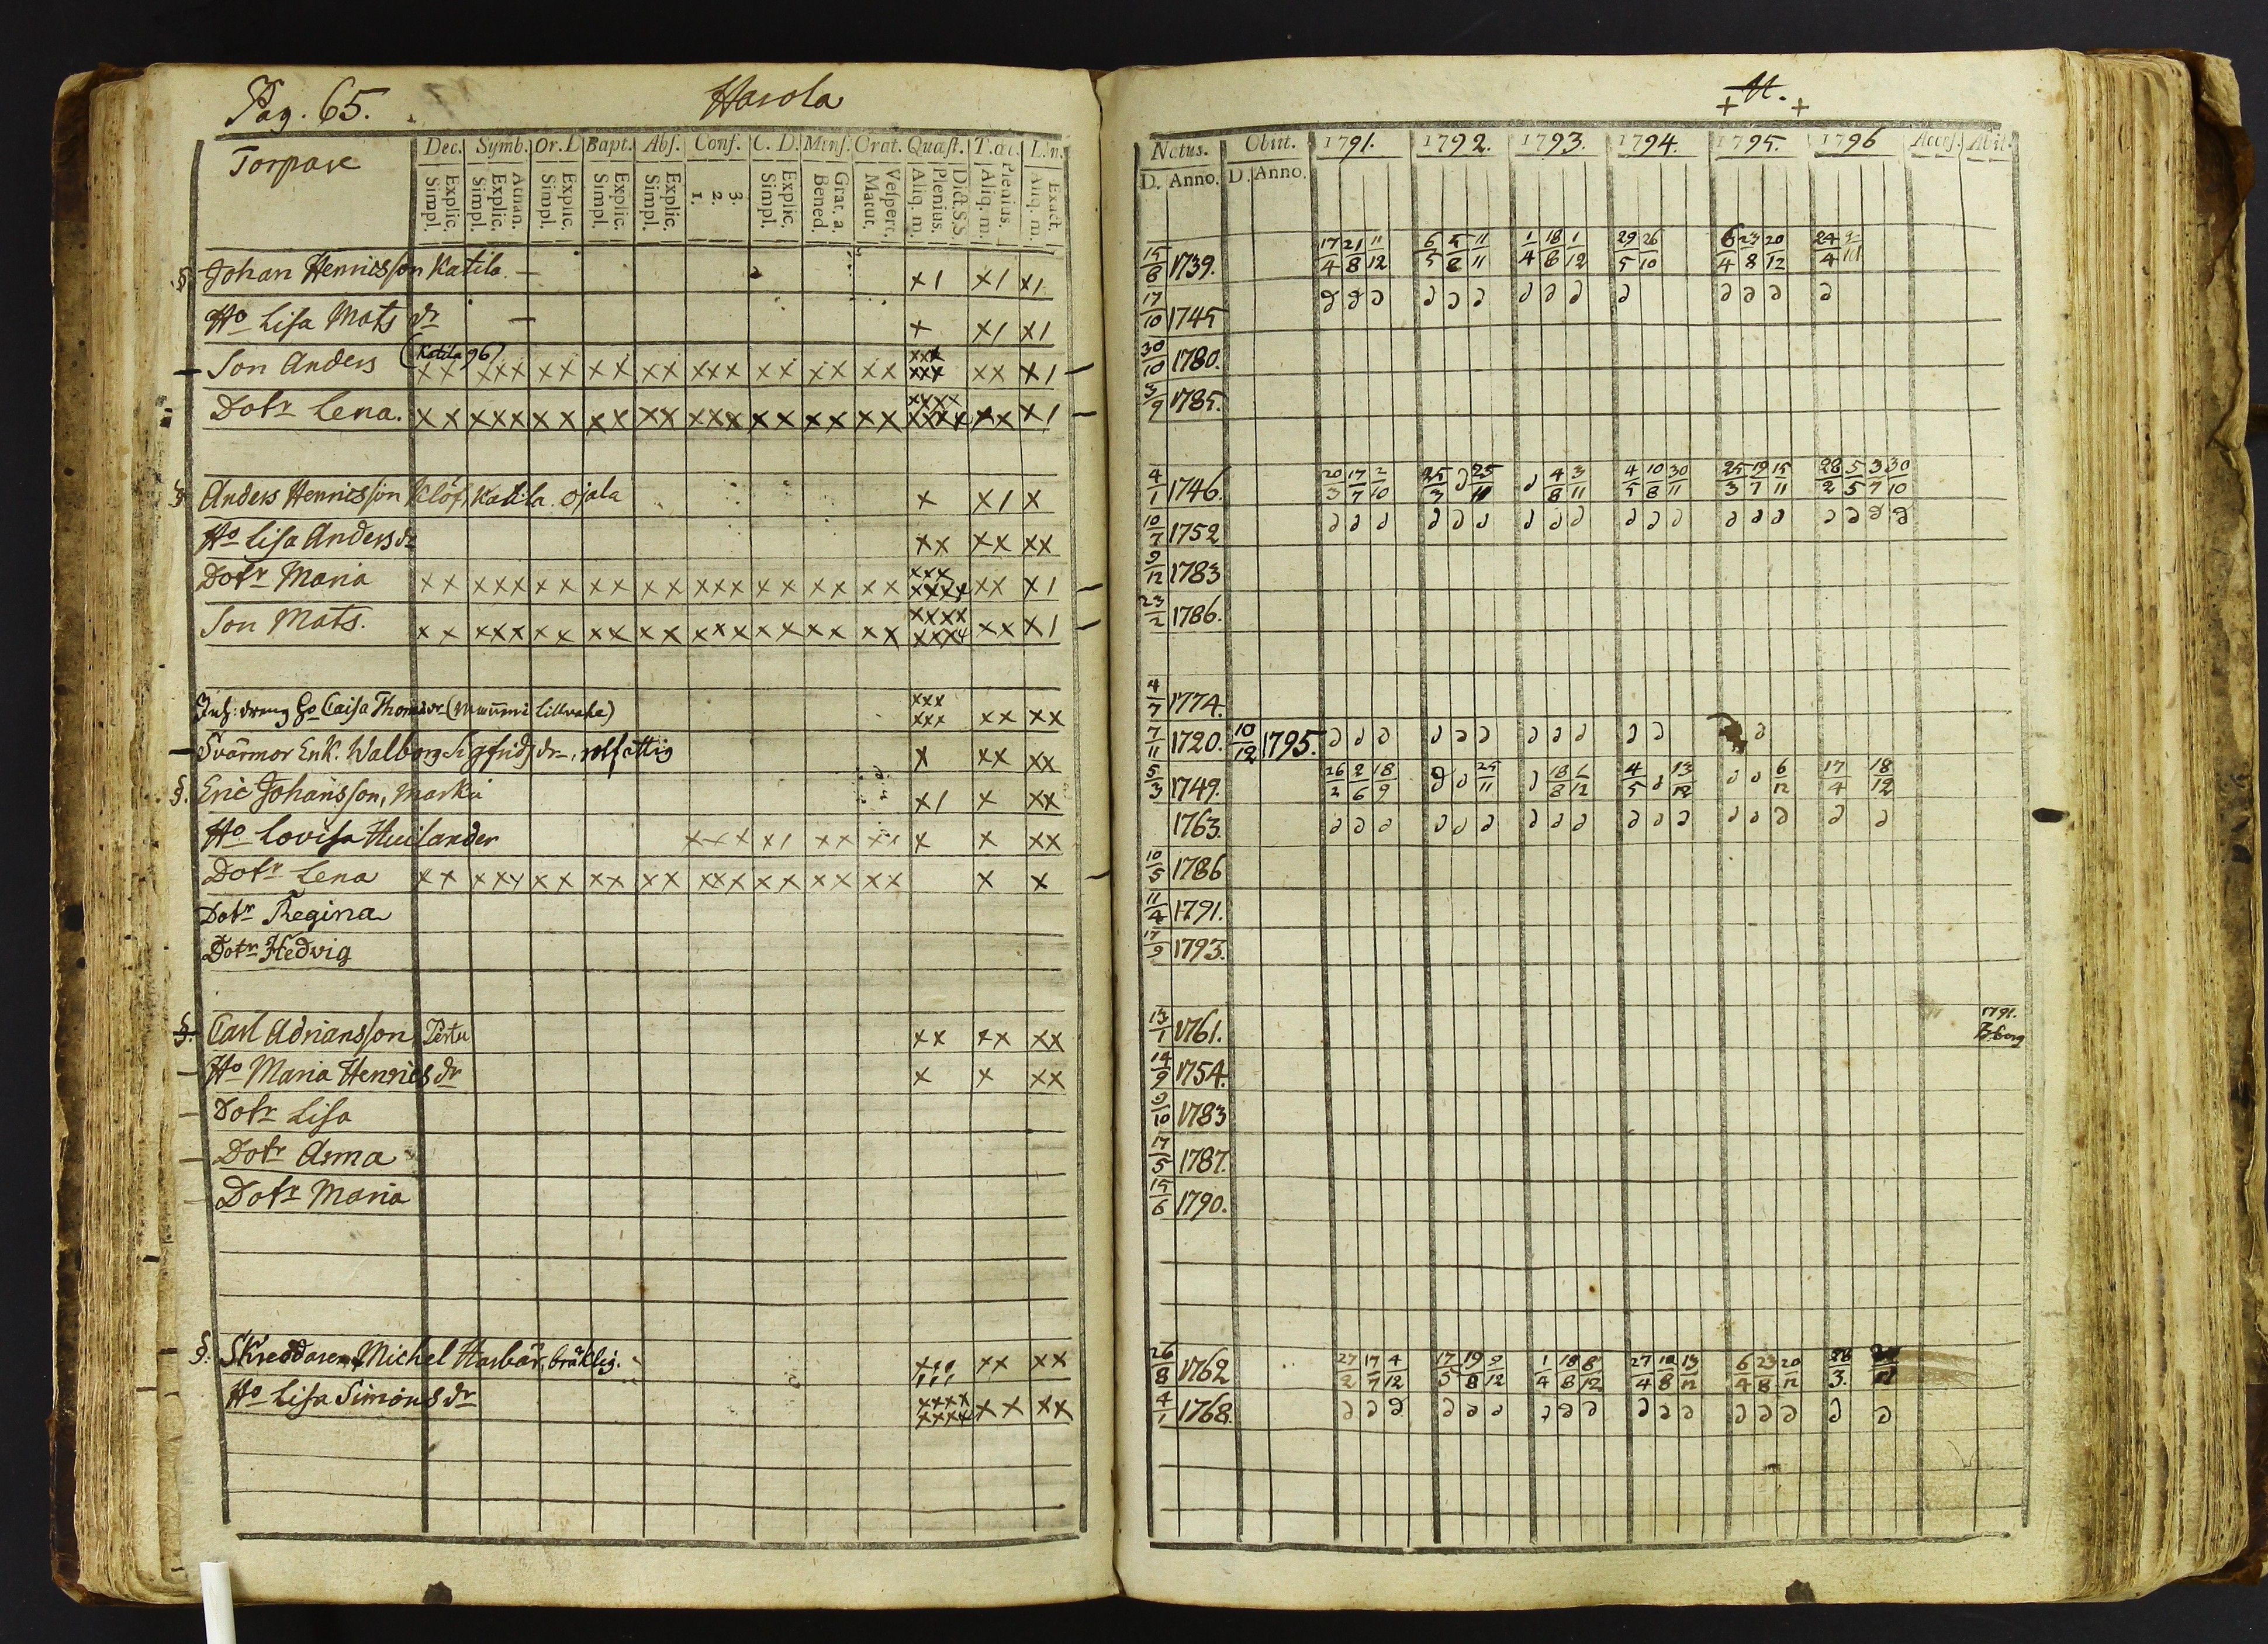 Pag. 65. Harola
Dec. Symb. Or. D Bapt. Abs. Conf. C. D. Mens. Orat. Quæst. T. œc. L. n.
Torpare
Explic. Simpl. Athan. Explic. Simpl. Explic. Simpl. Explic. Simpl. Explic. Simpl. 3. 2. 1. Explic. Simpl. Grat. a. Bened. Vespert. Matut. Dict. S.S. Plenius. Aliq. m. Plenius. Aliq. m. Exact. Aliq. m.
§ Johan Henricsson Katila. x1 x1 x1
Ho Lisa Mats dr x x1 x1
Son Anders (Katila 96) xx xxx xx xx xx xxx xx xx xx xxx xxx xx x1
Dotr Lena. xx xxx xx xx xx xxx xx xx xx xxxx xxxx xx x1
§ Anders Henricsson Klöf, Katila. Ojala x x1 x
Ho Lisa Anders dr xx xx xx
Dotr Maria xx xxx xx xx xx xxx xx xx xx xxx xxxx xx x1
Son Mats. xx xxx xx xx xx xxx xx xx xx xxxx xxxx xx x1
Inh: dreng Ho Caisa Thomas dr xxx xxx xx xx
Svärmor Enk. Walborg Sigfrids dr, rotfattig x xx xx
§. Eric Johansson, Marku x1 x xx
Ho Lovisa Huilander xxx x1 xx xx x x xx
Dotr Lena xx xxx xx xx xx xxx xx xx xx x x
Dotr Regina
Dotr Hedvig
§. Carl Adriansson Pertu xx xx xx
Ho Maria Henrics dr x x xx
Dotr Lisa
Dotr Anna
Dotr Maria
§. Skreddaren Michel Hasbär, bräklig. xx xx
Ho Lisa Simons dr xxxx xxxx xx xx
Natus. Obiit. 1791. 1792. 1793. 1794. 1795. 1796 Access. Abit.
D. Anno. D. Anno.
15/8 1739. 17/4 21/8 11/12 6/5 5/8 11/11 1/4 18/8 1/12 29/5 26/10 6/4 23/8 20/12 24/4
17/10 1745
30/10 1780.
3/9 1785.
4/1 1746. 20/3 17/7 2/10 25/3 25/11 4/8 3/11 4/5 10/8 30/11 25/3 19/7 15/11 28/2 5/5 3/7 30/10
10/7 1752
9/12 1783
23/2 1786.
4/7 1774.
7/11 1720. 10/12 1795.
5/3 1749. 26/2 2/6 18/9 25/11 18/8 1/12 4/5 13/12 6/12 17/4 18/12
1763.
10/5 1786
11/4 1791.
17/9 1793.
13/1 1761. 1791.
14/9 1754.
9/10 1783
17/5 1787.
15/6 1790.
26/8 1762 27/2 17/7 4/12 17/5 19/8 9/12 1/4 18/8 8/12 27/4 10/8 13/12 6/4 23/8 20/12
4/1 1768.